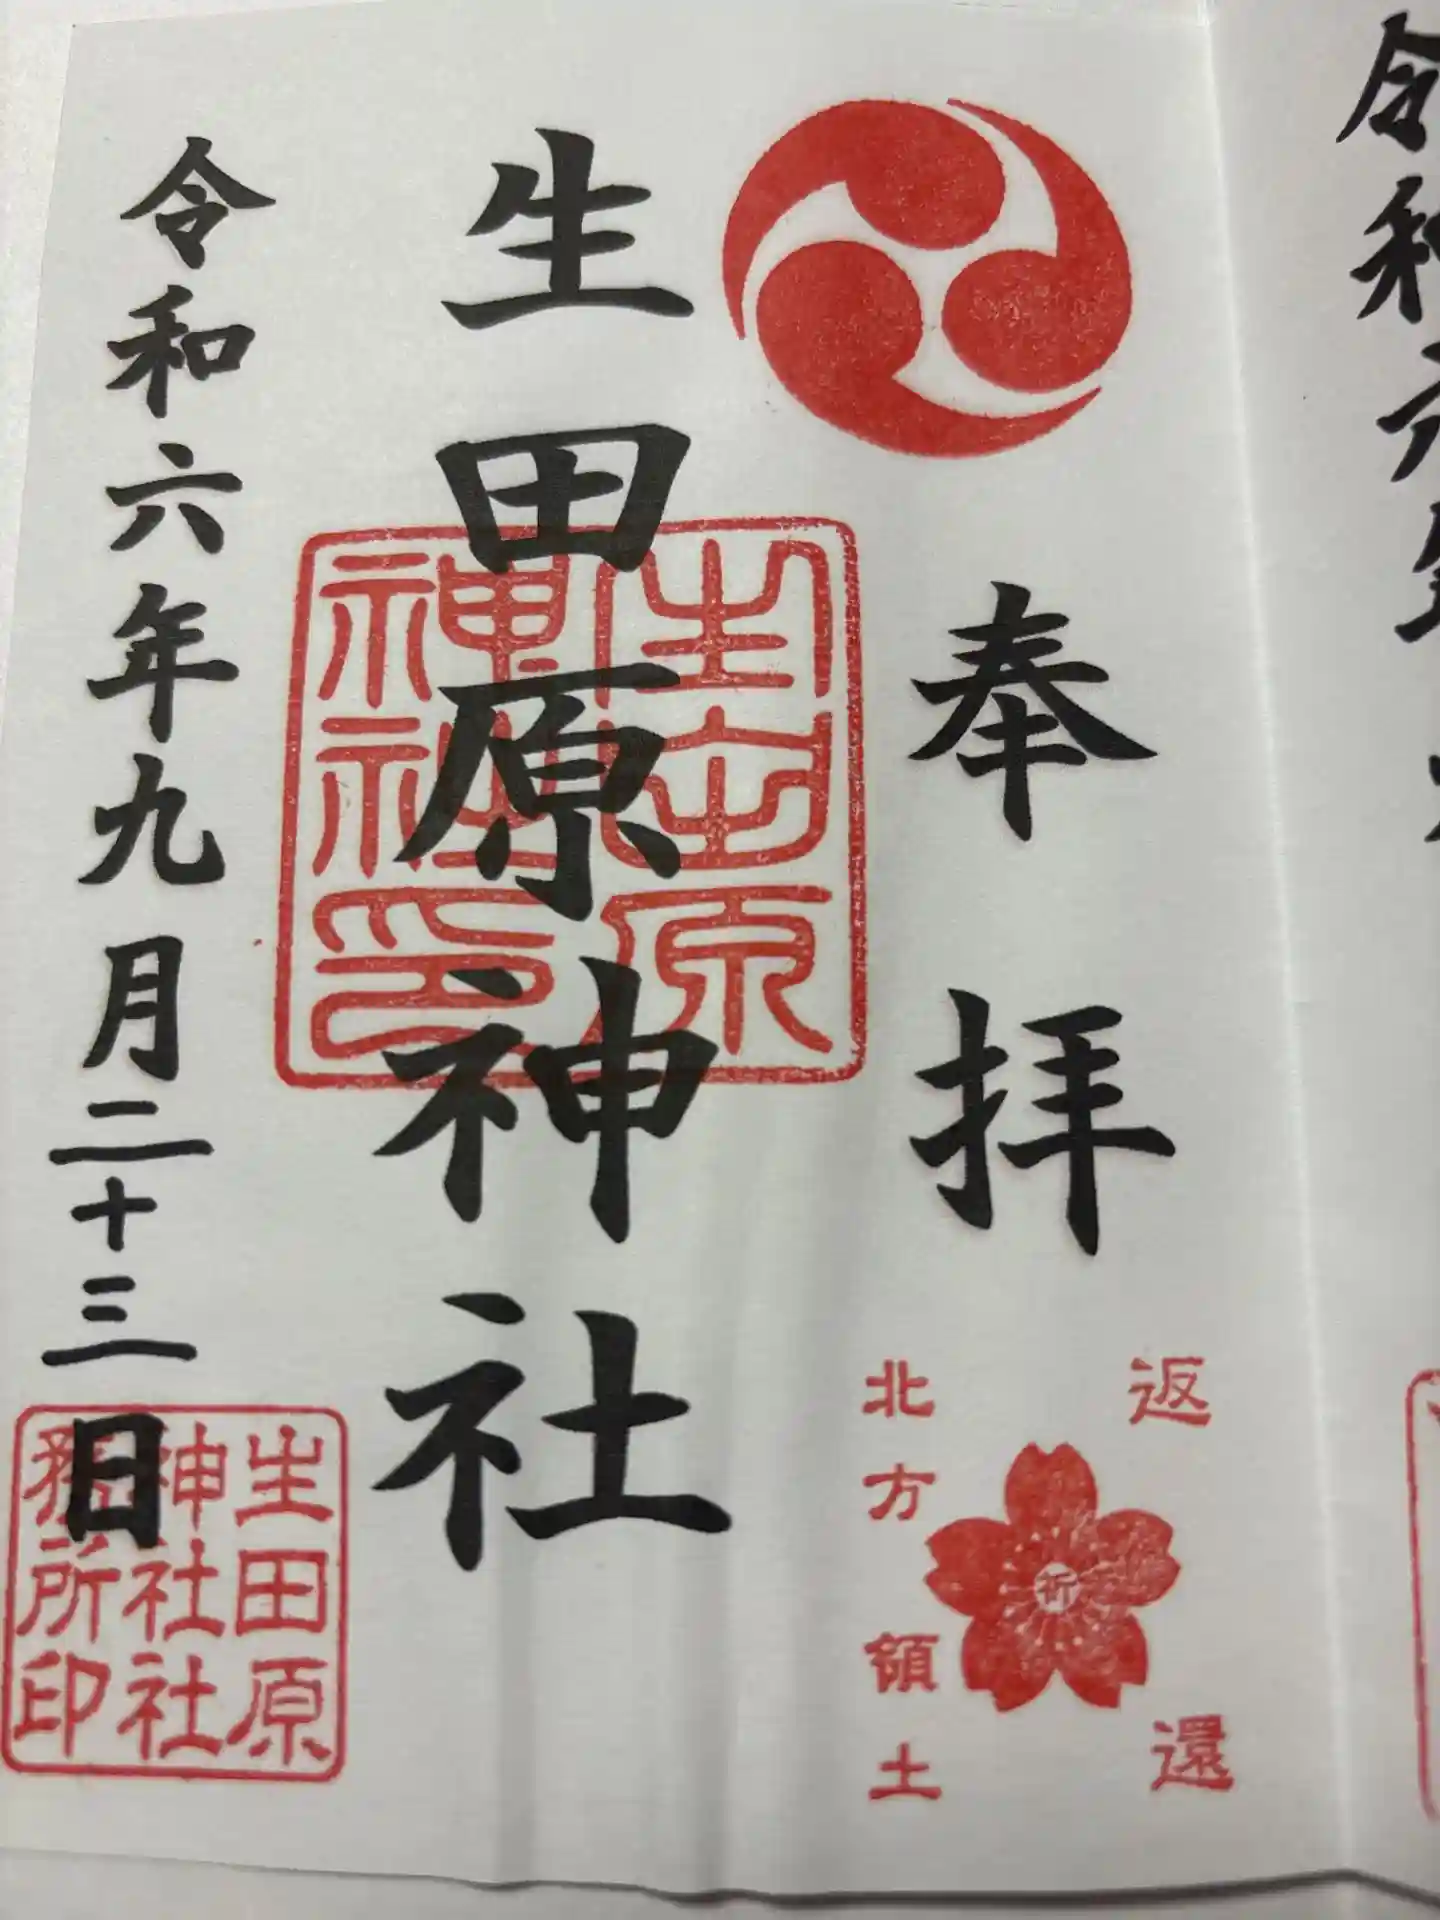 令和元年
奉拝
返還
北方領土
祈
生田原神社
生田原
神社印
令和六年九月二十三日
生田原
神社社
務所印